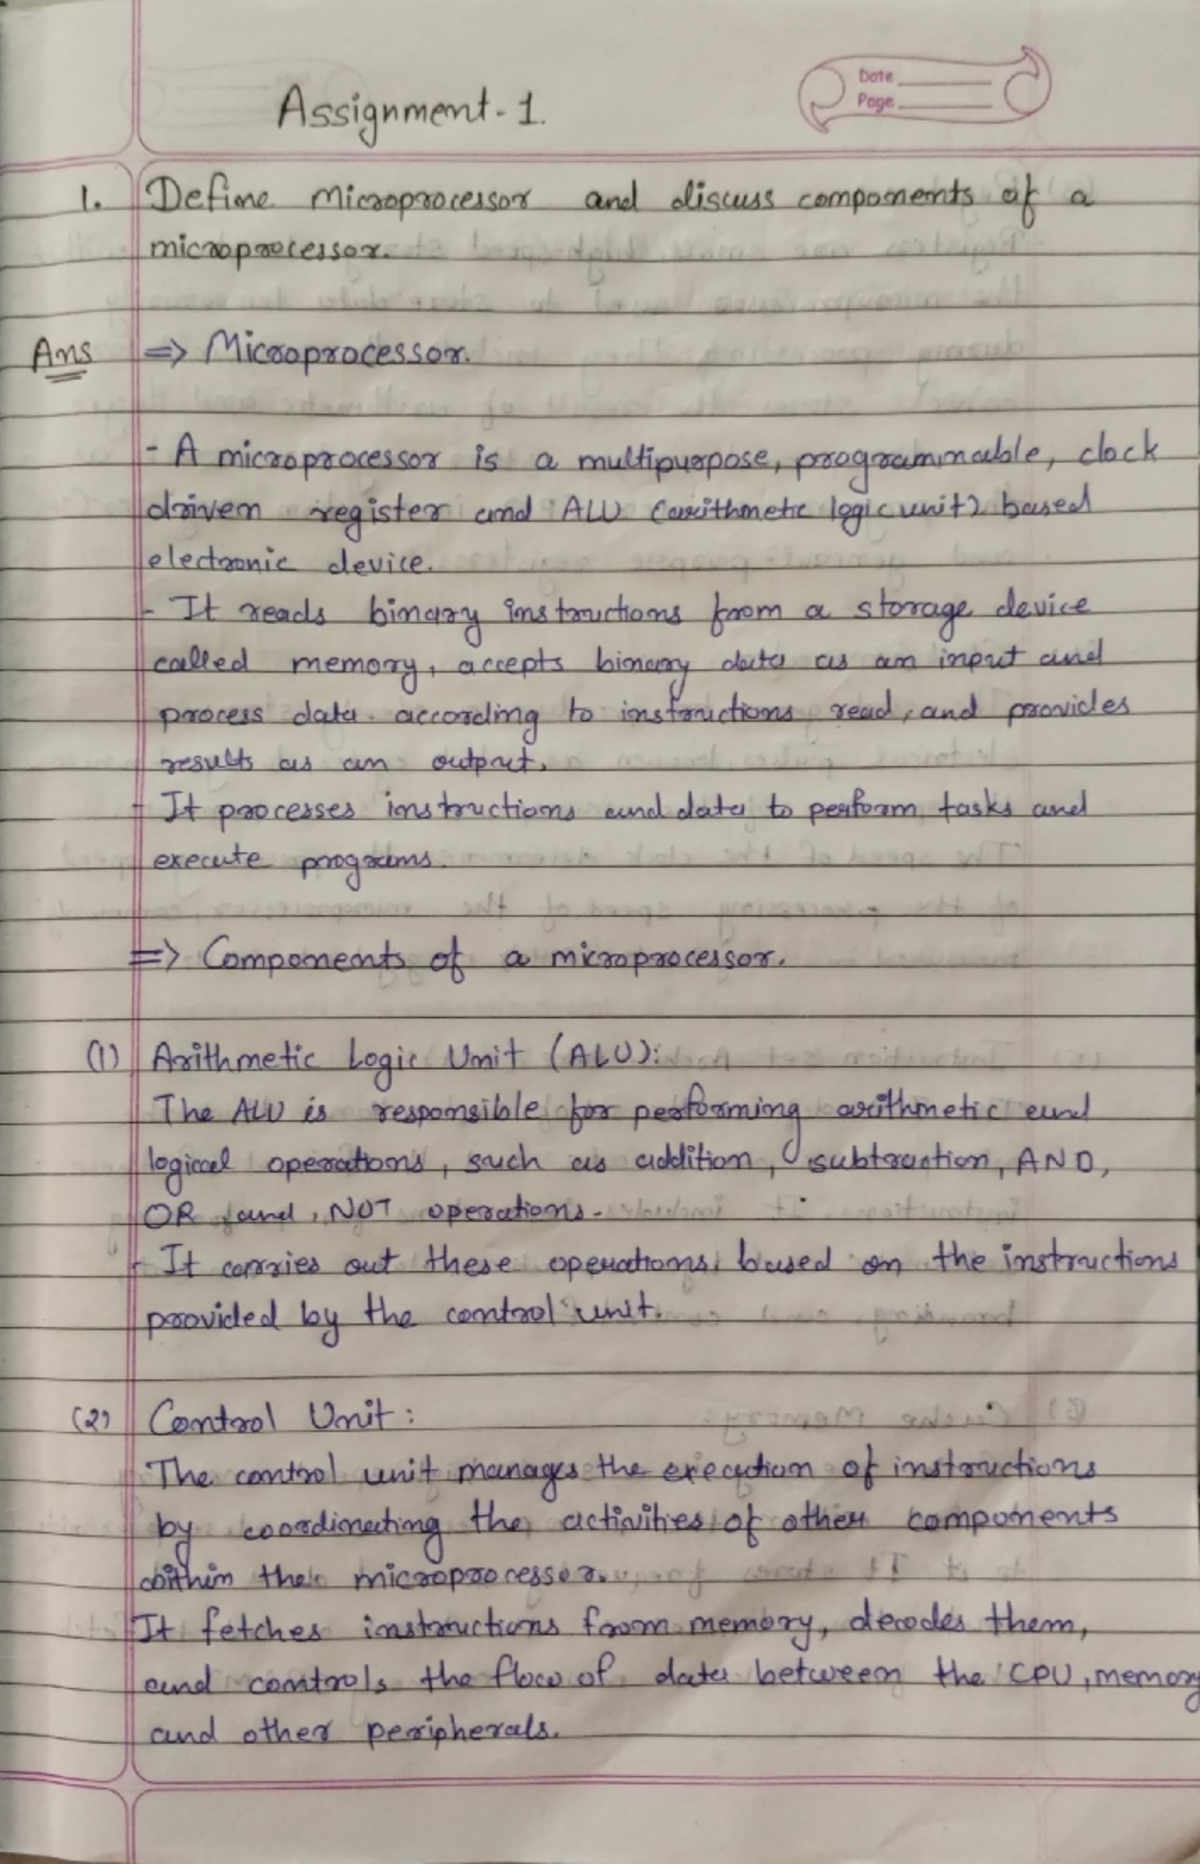 Date
Page
Assignment-1.
1. Define Microprocessor and discuss components of a
microprocessor.
Ans => Microprocessor.
- A microprocessor is a multipurpose, programmable, clock
driven register and ALU (arithmetic logic unit) based
electronic device.
- It reads binary instructions from a storage device
called memory, accepts binary data as an input and
process data according to instructions read, and provides
results as an output.
- It processes instructions and data to perform tasks and
execute programs.
=> Components of a microprocessor.
(1) Arithmetic Logic Unit (ALU):
The ALU is responsible for performing arithmetic and
logical operations, such as addition, subtraction, AND,
OR and, NOT operations.
- It carries out these operations based on the instructions
provided by the control unit.
(2) Control Unit:
The control unit manages the execution of instructions
by coordinating the activities of other components
within the microprocessor.
It fetches instructions from memory, decodes them,
and controls the flow of data between the CPU, memory
and other peripherals.